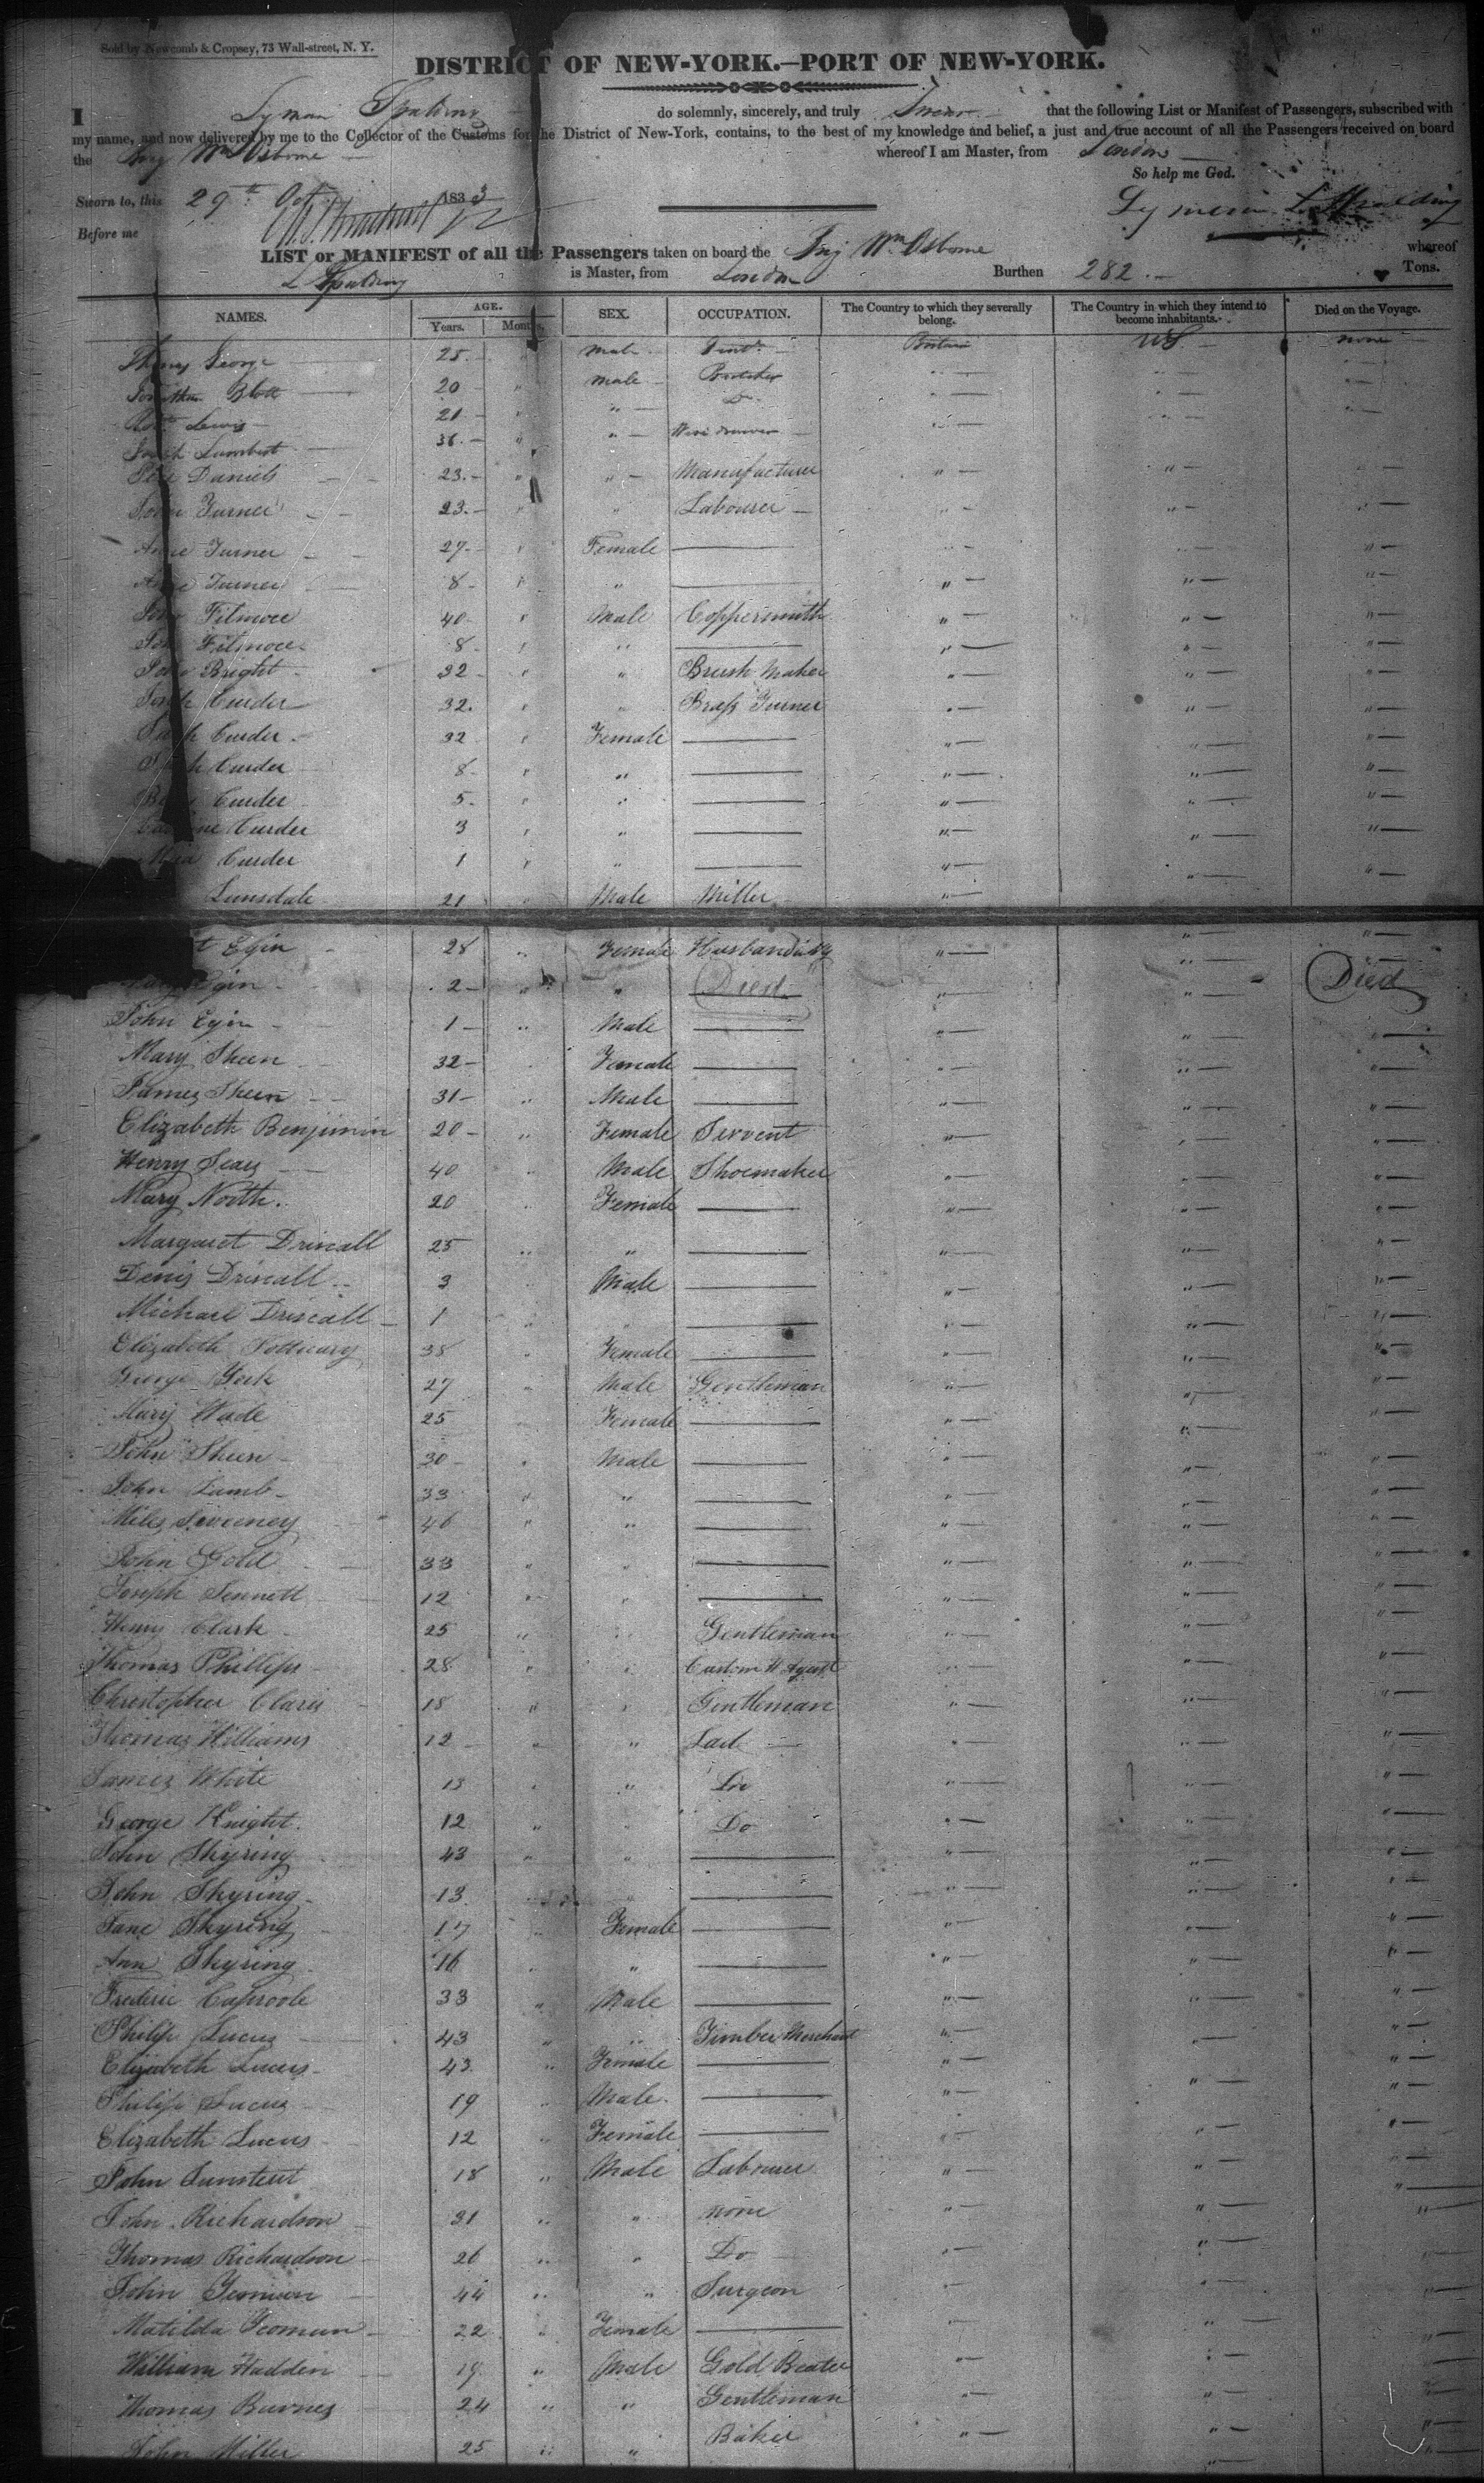 Sold by Newcomb & Cropsey, 73 Wall-street, N. Y.
DISTRICT OF NEW-YORK.—PORT OF NEW-YORK.
I Lyman Spalding do solemnly, sincerely, and truly Swear that the following List or Manifest of Passengers, subscribed with
my name, and now delivered by me to the Collector of the Customs for the District of New-York, contains, to the best of my knowledge and belief, a just and true account of all the Passengers received on board
the Brig Wm Osborne whereof I am Master, from London
So help me God.
Sworn to, this 29th Oct 1833
Lyman Spalding
Before me
LIST or MANIFEST of all the Passengers taken on board the Brig Wm Osborne whereof
L Spalding is Master, from London Burthen 282 Tons.
NAMES. AGE. SEX. OCCUPATION. The Country to which they severally belong. The Country in which they intend to become inhabitants. Died on the Voyage.
Years. Months.
George 25 " Male Britain US none
Blott 20 " Male Butcher " "
Lewis 21 " " Do " "
Lambert 36 " "
Daniels 23 " " Manufacturer " " "
John Turner 23 " " Labourer " " "
Anne Turner 27 " Female — " " "
Turner 8 " " — " " "
Filmore 40 " Male Coppersmith " " "
Filmore 8 " " — " " "
Bright 32 " " Brush Maker " " "
Curder 32 " " Brass Turner " " "
Curder 32 " Female — " " "
Curder 8 " " — " " "
Curder 5 " " — " " "
Curder 3 " " — " " "
Curder 1 " " — " " "
Lunsdale 21 " Male Miller "
Egin 28 " Female Husbandry " " "
Egin 2 " " Died " " Died
John Egin 1 " Male — " " "
Mary Sheen 32 " Female — " " "
James Sheen 31 " Male — " " "
Elizabeth Benjimin 20 " Female Servent " " "
Henry 40 " Male Shoemaker " " "
Mary North 20 " Female — " " "
Margaret Driscall 25 " " — " " "
Denis Driscall 3 " Male — " " "
Michael Driscall 1 " " — " " "
Elizabeth 38 " Female — " " "
George 27 " Male Gentleman " " "
Mary Wade 25 " Female — " " "
John Sheen 30 " Male — " " "
John Lamb 33 " " — " " "
Miles Sweeney 46 " " — " " "
John Gold 33 " " — " " "
Joseph Sennett 12 " " — " " "
Henry Clark 25 " " Gentleman " " "
Thomas Phillips 28 " " Custom H Agent " " "
Christopher Claris 18 " " Gentleman " " "
Thomas Williams 12 " " Lad " " "
James White 13 " " Do " " "
George Knight 12 " " Do " " "
John Skyring 43 " " — " " "
John Skyring 13 " " — " " "
Jane Skyring 17 " Female — " " "
Ann Skyring 16 " " — " " "
Frederic 33 " Male — " " "
Philip Lucus 43 " " Timber Merchant " " "
Elizabeth Lucus 43 " Female — " "
Philip Lucus 19 " Male — " " "
Elizabeth Lucus 12 " Female — " " "
John 18 " Male Labourer " " "
John Richardson 31 " " none " " "
Thomas Richardson 26 " " Do " " "
John Yeoman 44 " " Surgeon " " "
Matilda Yeoman 22 " Female — " " "
William Hadden 19 " Male Gold Beater " " "
Thomas Burnes 24 " " Gentleman " " "
John Miller 25 " " Baker " " "